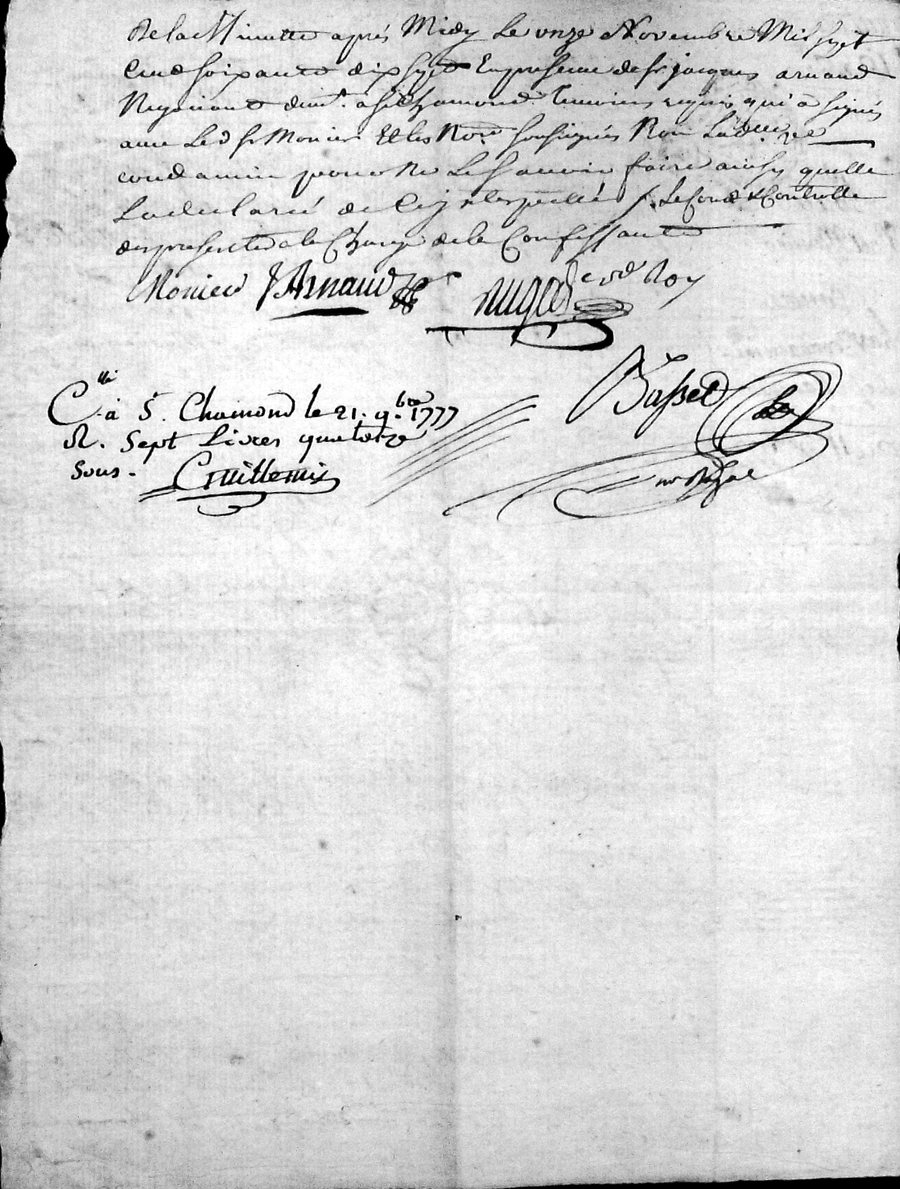 De la Minutte après Midy Le onze Novembre Mil sept
Cent soixante dix sept En presence de sr jacques arnaud
Negotiant demt. a st Chamond temoins requis qui a signés
avec Led. sr Monier Et les Nores soussignés Non Lad.
condamin pour Ne Le sçavoir faire ainsy quelle
La declaré de Ce Interpellée /. & Controlle
des presentes a la Charge de la Confessante
Monier J Arnaud
Basset
Clle à S. Chamond le 21. 9.bre 1777
R. Sept Livres quatorze
Sous.